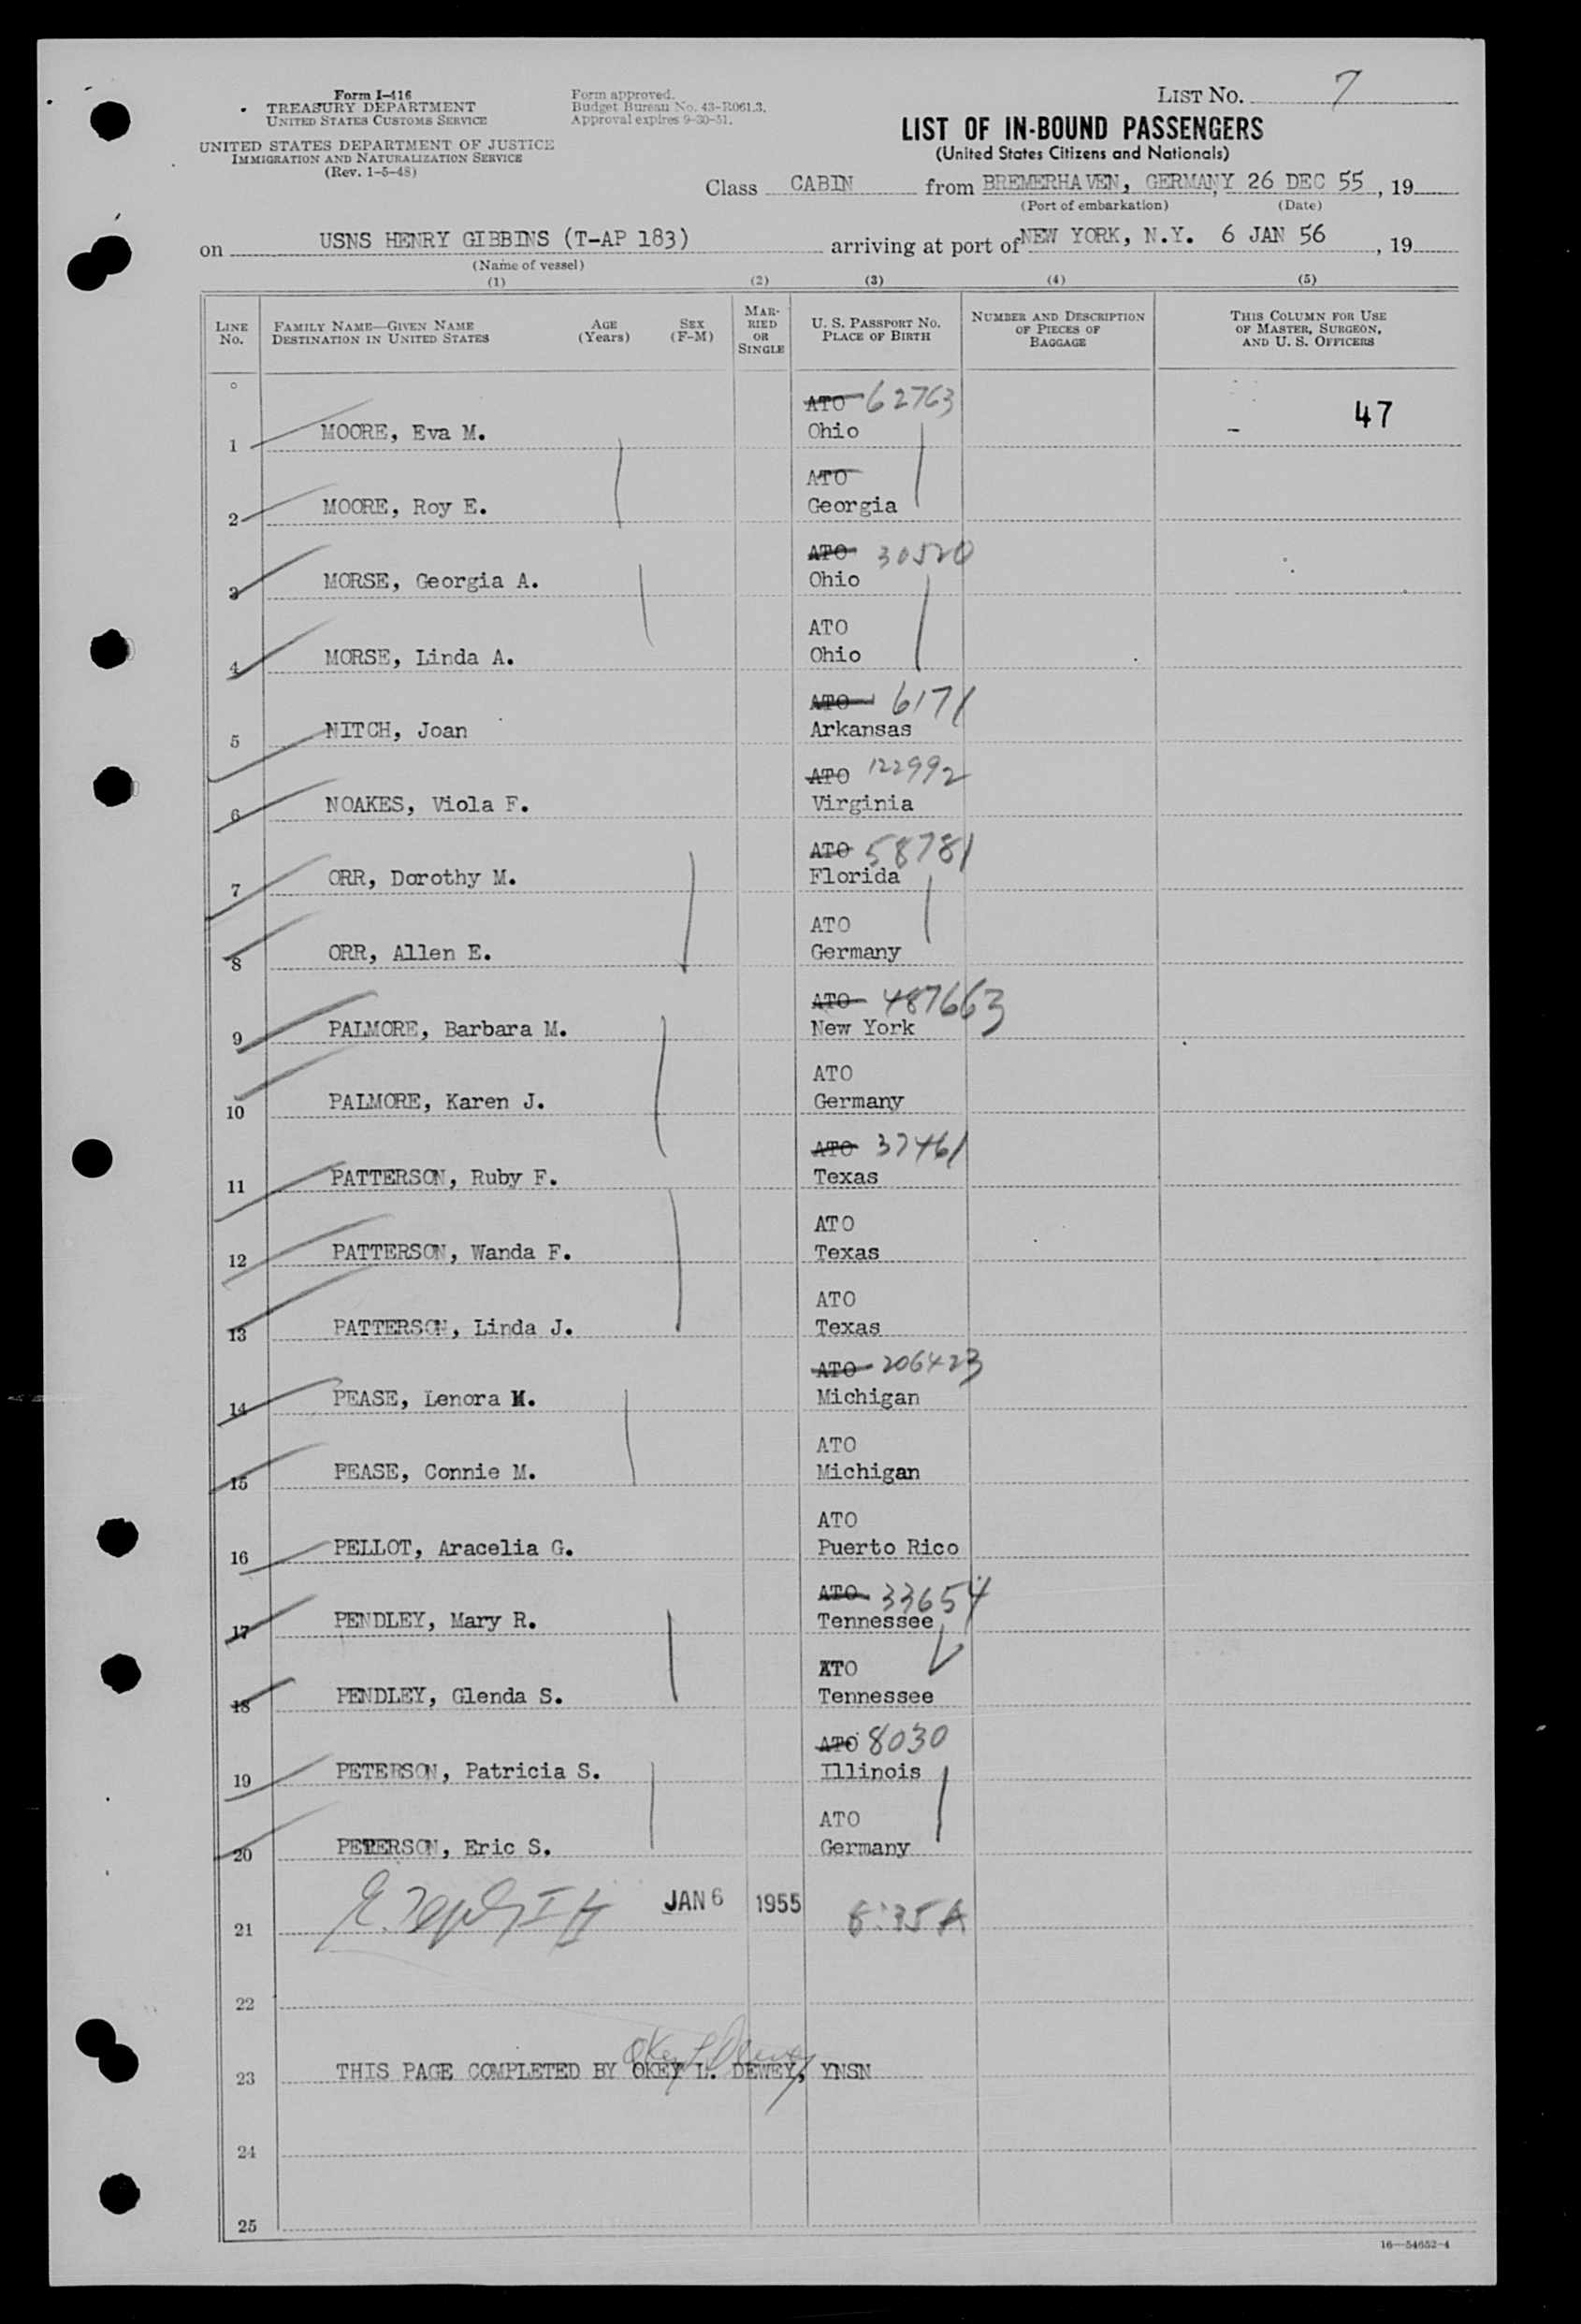 Form I-416
TREASURY DEPARTMENT
UNITED STATES CUSTOMS SERVICE
UNITED STATES DEPARTMENT OF JUSTICE
IMMIGRATION AND NATURALIZATION SERVICE
(Rev. 1-5-48)
Form approved.
Budget Bureau No. 43-R061.3.
Approval expires 9-30-51.
LIST NO. 7
LIST OF IN-BOUND PASSENGERS
(United States Citizens and Nationals)
Class CABIN from BREMERHAVEN, GERMANY, 26 DEC 55, 19
(Port of embarkation) (Date)
on USNS HENRY GIBBINS (T-AP 183) arriving at port of NEW YORK, N.Y. 6 JAN 56, 19
(Name of vessel)
(1) (2) (3) (4) (5)
LINE NO. FAMILY NAME—GIVEN NAME DESTINATION IN UNITED STATES AGE (Years) SEX (F-M) MARRIED OR SINGLE U. S. PASSPORT NO. PLACE OF BIRTH NUMBER AND DESCRIPTION OF PIECES OF BAGGAGE THIS COLUMN FOR USE OF MASTER, SURGEON, AND U. S. OFFICERS
ATO 62763
1 MOORE, Eva M. Ohio 47
ATO
2 MOORE, Roy E. Georgia
ATO 30520
3 MORSE, Georgia A. Ohio
ATO
4 MORSE, Linda A. Ohio
ATO 6171
5 NITCH, Joan Arkansas
ATO 122992
6 NOAKES, Viola F. Virginia
ATO 58781
7 ORR, Dorothy M. Florida
ATO
8 ORR, Allen E. Germany
ATO 487663
9 PALMORE, Barbara M. New York
ATO
10 PALMORE, Karen J. Germany
ATO 37461
11 PATTERSON, Ruby F. Texas
ATO
12 PATTERSON, Wanda F. Texas
ATO
13 PATTERSON, Linda J. Texas
ATO 206423
14 PEASE, Lenora M. Michigan
ATO
15 PEASE, Connie M. Michigan
ATO
16 PELLOT, Aracelia G. Puerto Rico
ATO 33654
17 PENDLEY, Mary R. Tennessee
ATO
18 PENDLEY, Glenda S. Tennessee
ATO 8030
19 PETERSON, Patricia S. Illinois
ATO
20 PETERSON, Eric S. Germany
21 JAN 6 1955 8:35 A
22
Okey L Dewey
23 THIS PAGE COMPLETED BY OKEY L. DEWEY, YNSN
24
25
16—54652-4